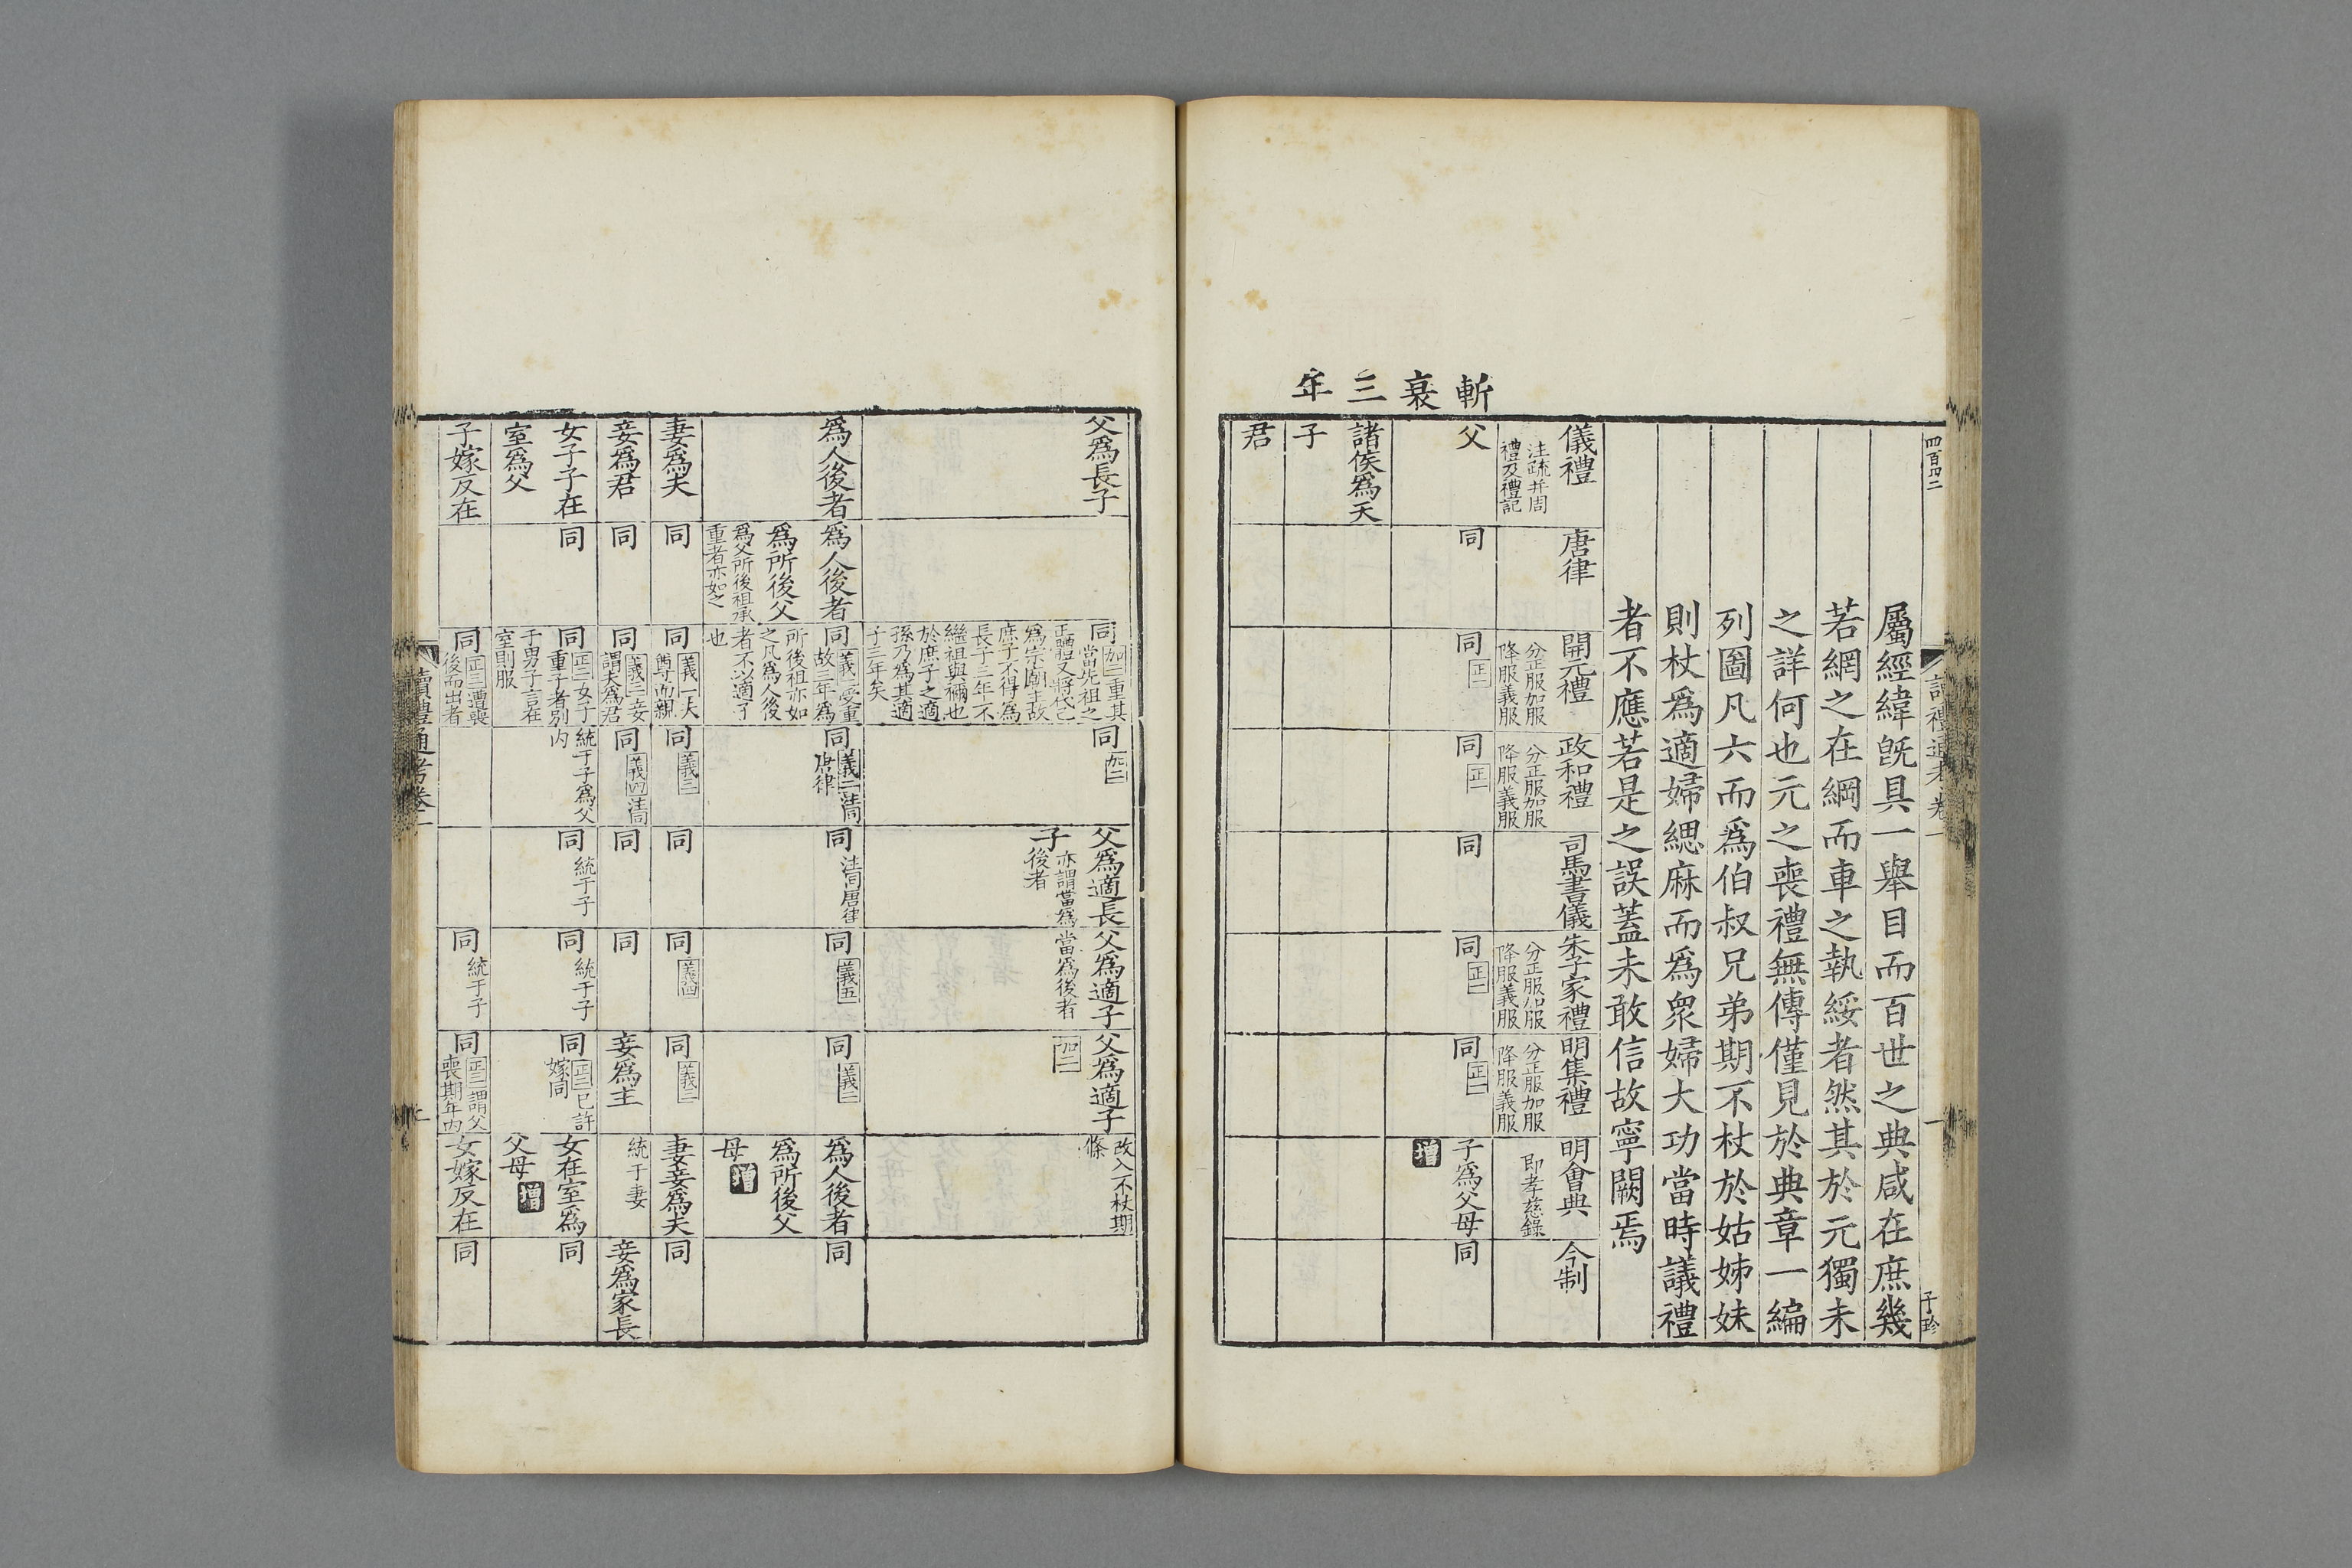 四百四二
讀禮通考卷一
一
子珍
屬經緯旣具一舉目而百世之典咸在庶幾
若網之在綱而車之執綏者然其於元獨未
之詳何也元之喪禮無傳僅見於典章一編
列圖凡六而爲伯叔兄弟期不杖於姑姊妹
則杖爲適婦緦麻而爲衆婦大功當時議禮
者不應若是之誤蓋未敢信故寧闕焉
斬衰三年
儀禮 注疏并周禮及禮記
唐律
開元禮 分正服加服降服義服
政和禮 分正服加服降服義服
司馬書儀
朱子家禮 分正服加服降服義服
明集禮 分正服加服降服義服
明會典 即孝慈錄
今制
父
同
同 正一
同 正一
同
同 正一
同 正一
子爲父母 增
同
諸侯爲天子
君
父爲長子
同 加二重其當先祖之正體又將代己爲宗廟主故庶子不得爲長子三年不繼祖與禰也於庶子之適孫乃爲其適子三年矣
同 加二
父爲適長子 亦謂當爲後者
父爲適子 當爲後者
父爲適子 加二
改入不杖期條
爲人後者
爲人後者爲所後父 爲父所後祖承重者亦如之
同 義一受重故三年爲所後祖亦如之凡爲人後者不以適子也
同 義二注同唐律
同 注同唐律
同 義五
同 義二
爲人後者爲所後父母 增
同
妻爲夫
同
同 義一夫尊而親
同 義三
同
同 義四
同 義三
妻妾爲夫
同
妾爲君
同
同 義二妾謂夫爲君
同 義四注同
同
同
妾爲主
統于妻
妾爲家長
女子子在室爲父
同
同 正二女子重子者別于男子言在室則服
統于子爲父內
同 統于子
同 統于子
同 正二已許嫁同
女在室爲父母 增
同
子嫁反在
同 正三遭喪後而出者
同 統于子
同 正三謂父喪期年內
女嫁反在
同
讀禮通考卷一